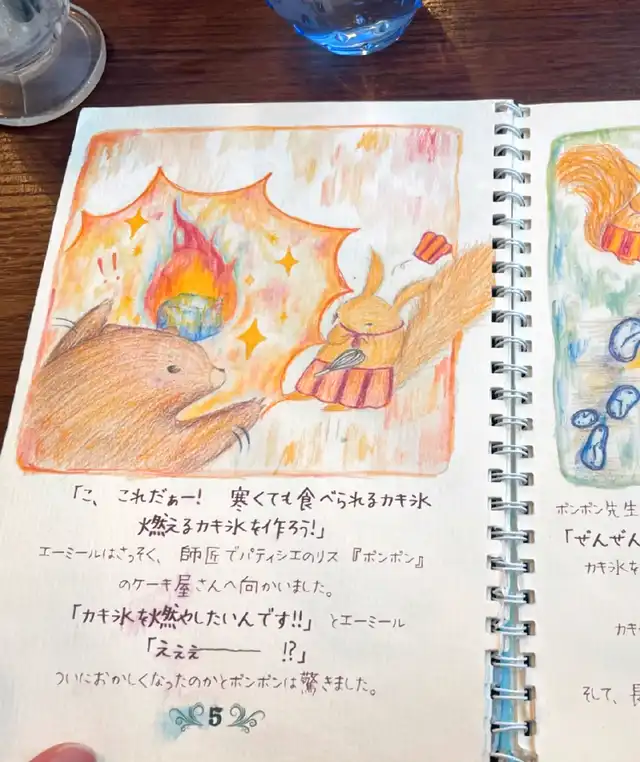 !!
「こ、これだぁー! 寒くても食べられるカキ氷
燃えるカキ氷を作ろう!」
エーミールはさっそく、師匠でパティシエのリス『ポンポン』
のケーキ屋さんへ向かいました。
「カキ氷を燃やしたいんです!!」とエーミール
「えぇぇ―――― !?」
ついにおかしくなったのかとポンポンは驚きました。
5
ポンポン先生
「ぜんぜん
カキ氷を
カキ
そして、長